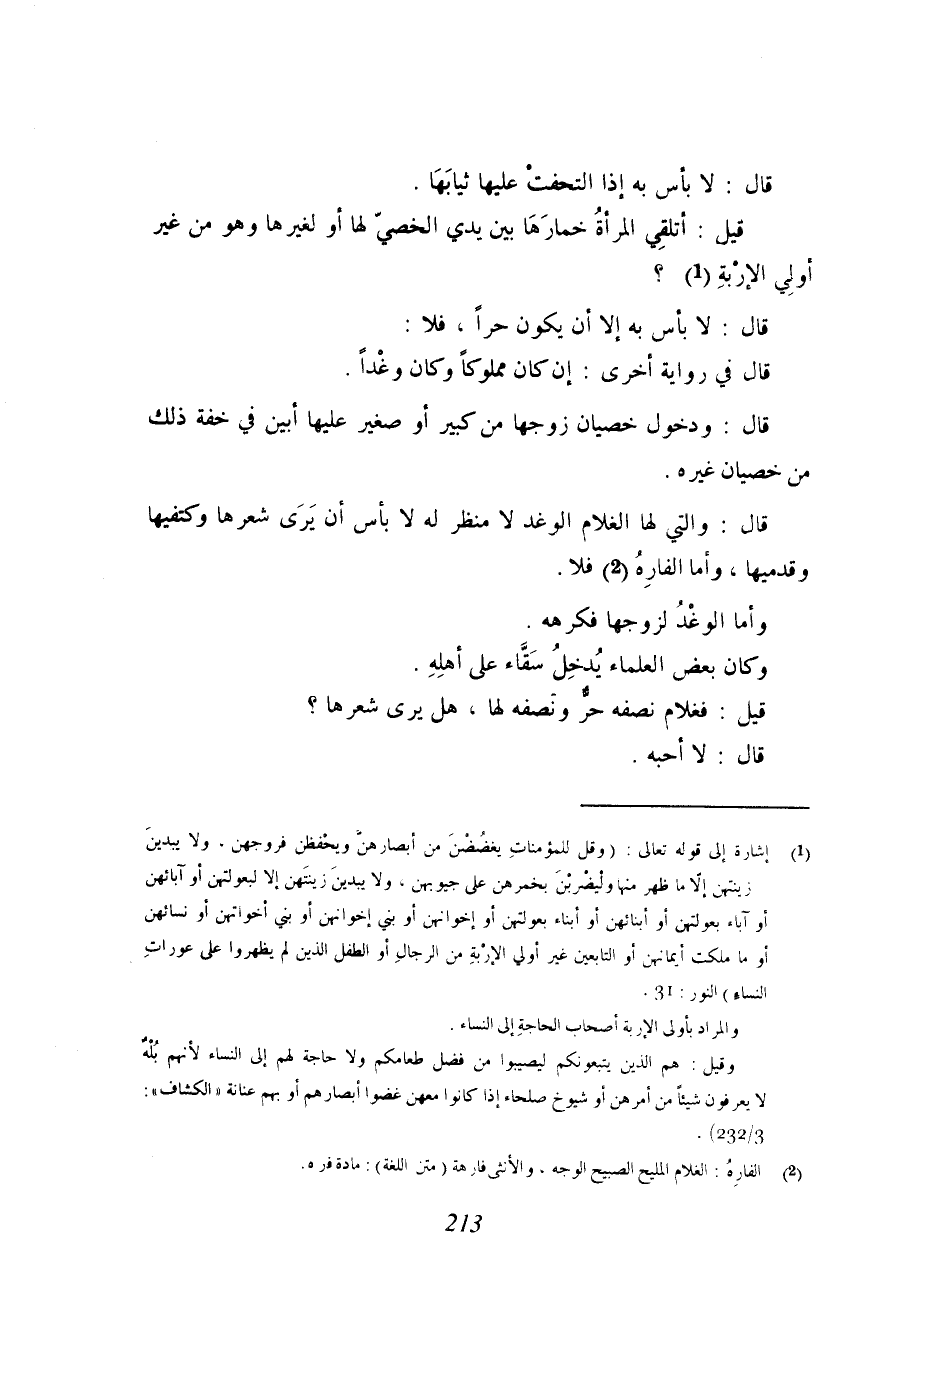 قال : لا بأس به إذا التحفتْ عليها ثيابَهَا .
قيل : أتلقِي المرأةُ خمارَهَا بين يدي الخصيّ لها أو لغيرها وهو من غير
أولِي الإرْبةِ (1) ؟
قال : لا بأس به إلا أن يكون حراً ، فلا :
قال في رواية أخرى : إن كان مملوكاً وكان وغْداً .
قال : ودخول خصيان زوجها من كبير أو صغير عليها أبين في خفة ذلك
من خصيان غيره .
قال : والتي لها الغلام الوغد لا منظر له لا بأس أن يَرَى شعرها وكتفيها
وقدميها ، وأما الفارِهُ (2) فلا .
وأما الوغْدُ لزوجها فكرهه .
وكان بعض العلماء يُدخِلُ سَقَّاء على أهلِهِ .
قيل : فغلام نصفه حرٌّ ونصفه لها ، هل يرى شعرها ؟
قال : لا أحبه .
(1) إشارة إلى قوله تعالى : (وقل للمؤمناتِ يغضُضْنَ من أبصارهنَّ ويحْفظن فروجهن . ولا يبدينَ
زينتهن إلّا ما ظهر منها وليْضربْنَ بخمرهن على جيوبهن ، ولا يبدينَ زينتَهن إلا لبعولتهن أو آبائهن
أو آباء بعولتهن أو أبنائهن أو أبناء بعولتهن أو إخوانهن أو بني إخوانهن أو بني أخواتهن أو نسائهن
أو ما ملكت أيمانهن أو التابعين غير أولي الإرْبةِ من الرجالِ أو الطفل الذين لم يظهروا على عوراتِ
النساء) النور : 31 .
والمراد بأولى الإربة أصحاب الحاجةِ إلى النساء .
وقيل : هم الذين يتبعونكم ليصيبوا من فضل طعامكم ولا حاجة لهم إلى النساء لأنهم بُلْهٌ
لا يعرفون شيئاً من أمرهن أو شيوخ صلحاء إذا كانوا معهن غضوا أبصارهم أو بهم عنانة «الكشاف»:
232/3) .
(2) الفارِهُ : الغلام المليح الصبيح الوجه ، والأنثى فارهة (متن اللغة) : مادة فره.
213